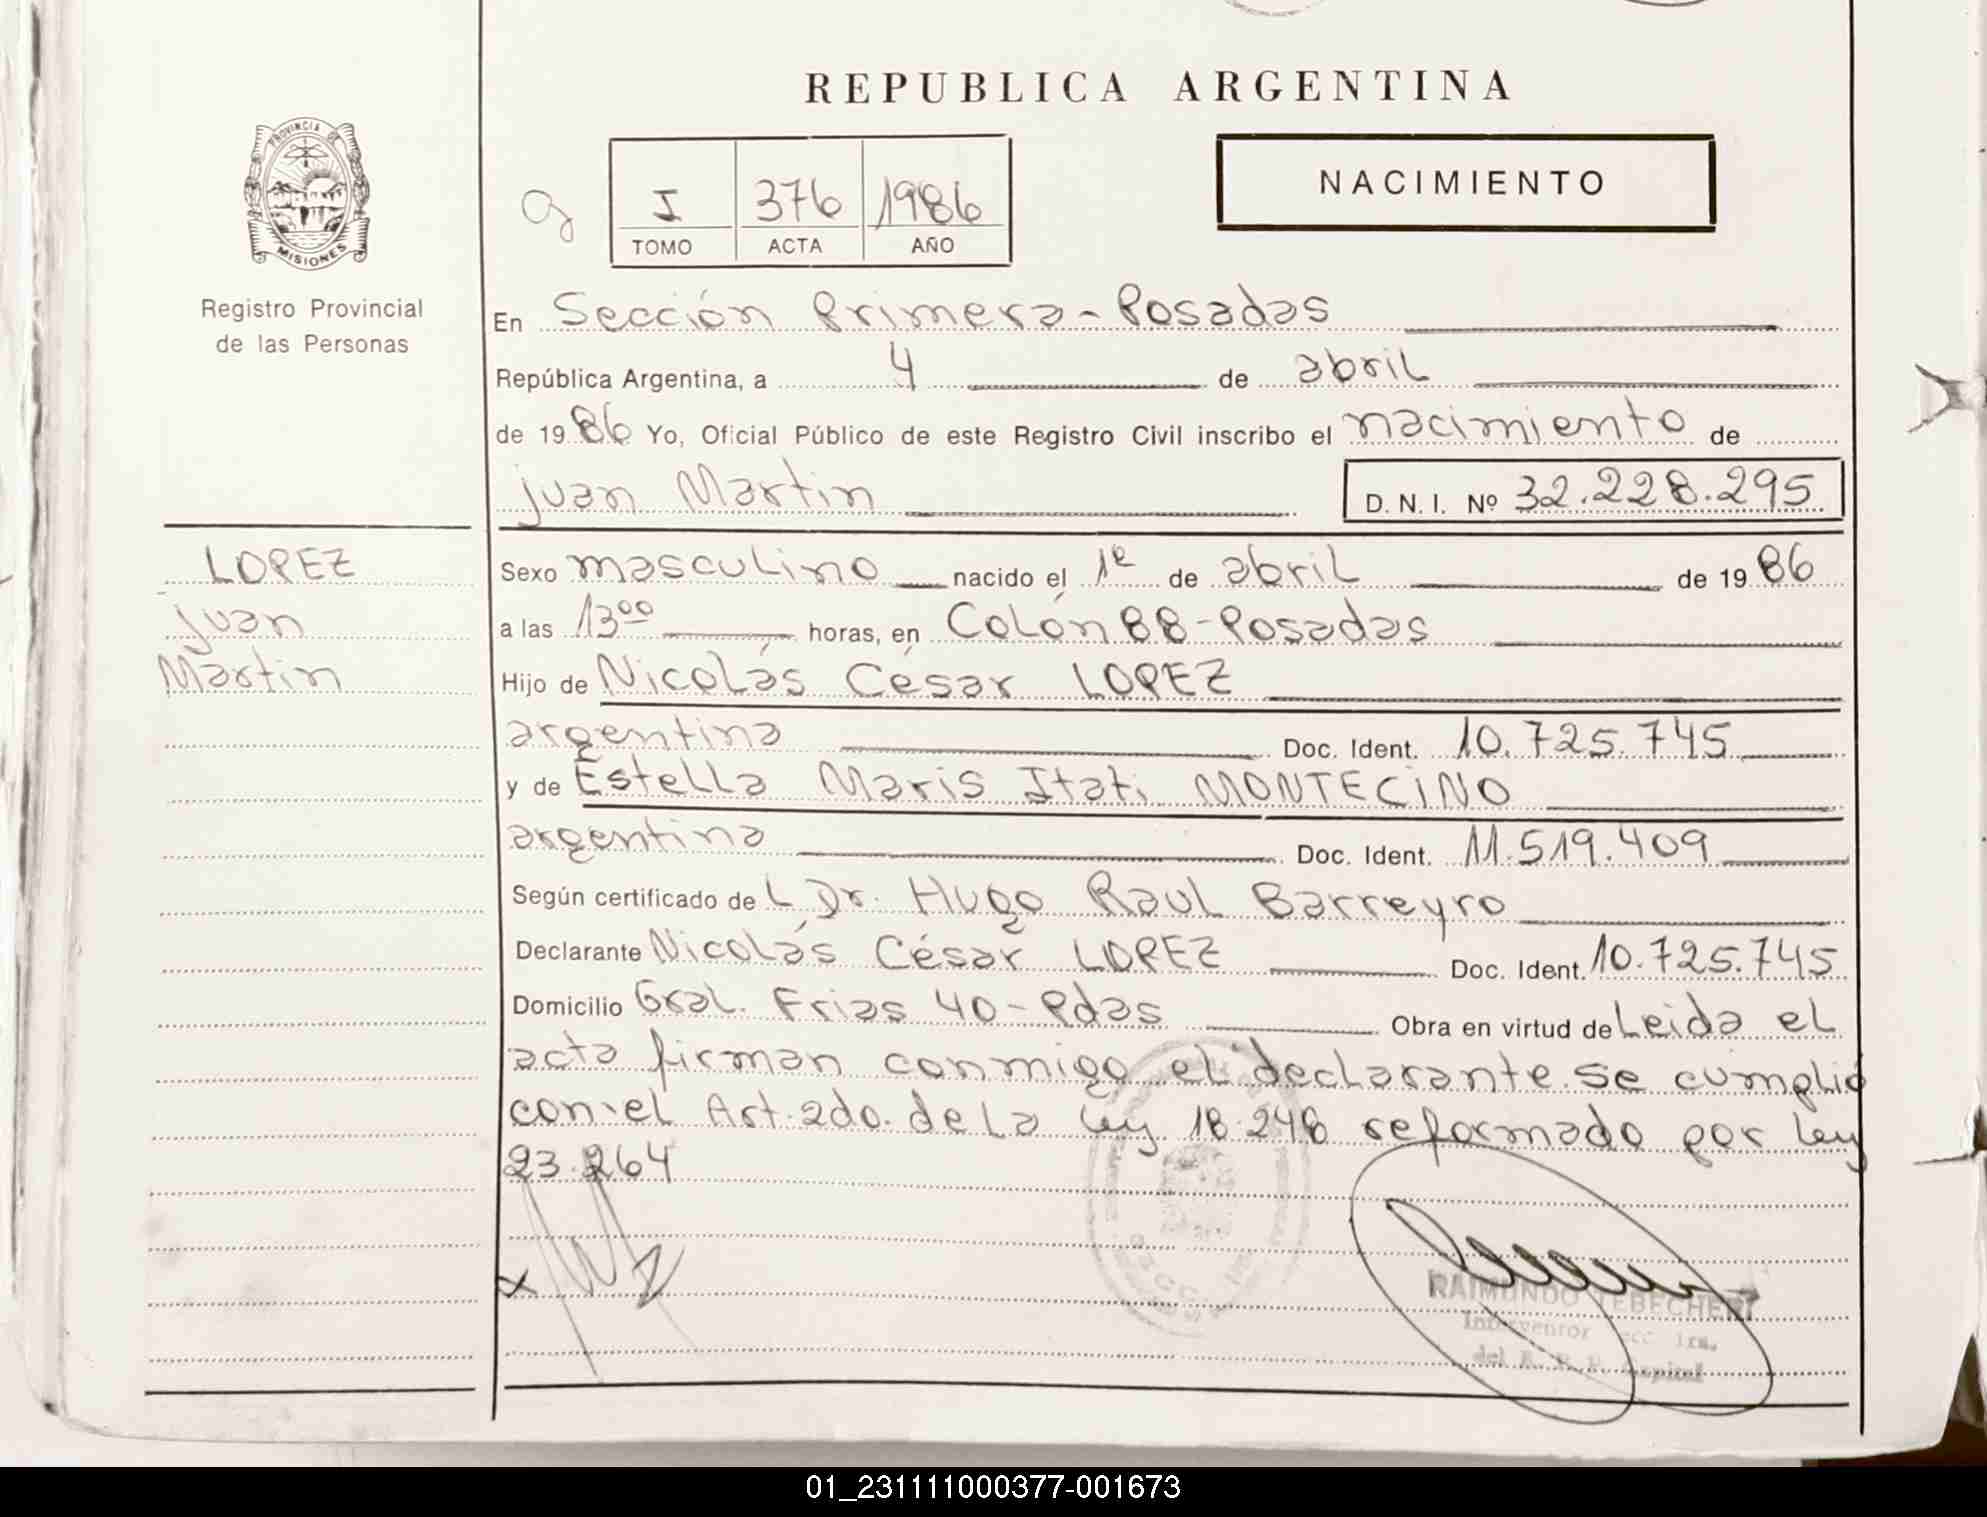 REPUBLICA ARGENTINA
PROVINCIA DE
MISIONES
Registro Provincial
de las Personas
I 376 1986
TOMO ACTA AÑO
NACIMIENTO
En Sección Primera - Posadas
República Argentina, a 4 de abril
de 1986 Yo, Oficial Público de este Registro Civil inscribo el nacimiento de
Juan Martin D. N. I. Nº 32.228.295
LOPEZ
Juan
Martin
Sexo masculino nacido el 1º de abril de 1986
a las 13⁰⁰ horas, en Colón 88 - Posadas
Hijo de Nicolás César LOPEZ
argentina Doc. Ident. 10.725.745
y de Estella Maris Itati MONTECINO
argentina Doc. Ident. 11.519.409
Según certificado del Dr. Hugo Raul Barreyro
Declarante Nicolás César LOPEZ Doc. Ident. 10.725.745
Domicilio Gral. Frias 40 - Pdas Obra en virtud de Leida el
acta firman conmigo el declarante. se cumplió
con el Art. 2do. de la Ley 18.248 reformado por Ley
23.264
RAIMUNDO TEBECHERI
Interventor Secc 1ra.
del R. P. P. Capital
01_231111000377-001673